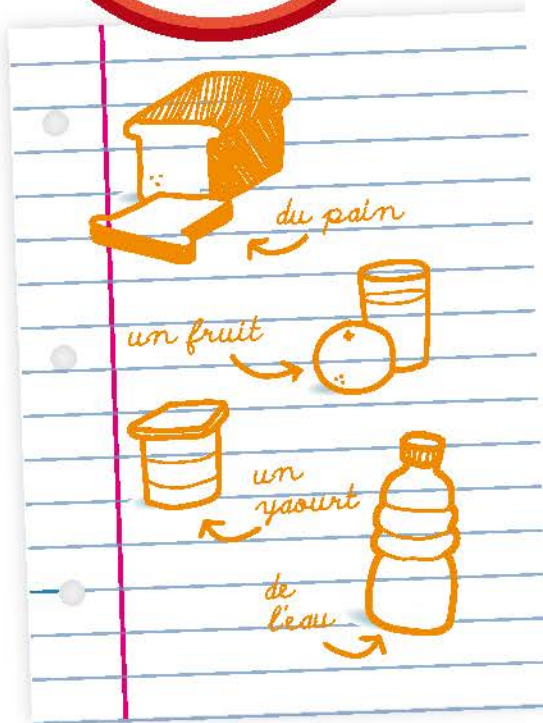 du pain
un fruit
un
yaourt
de
l'eau